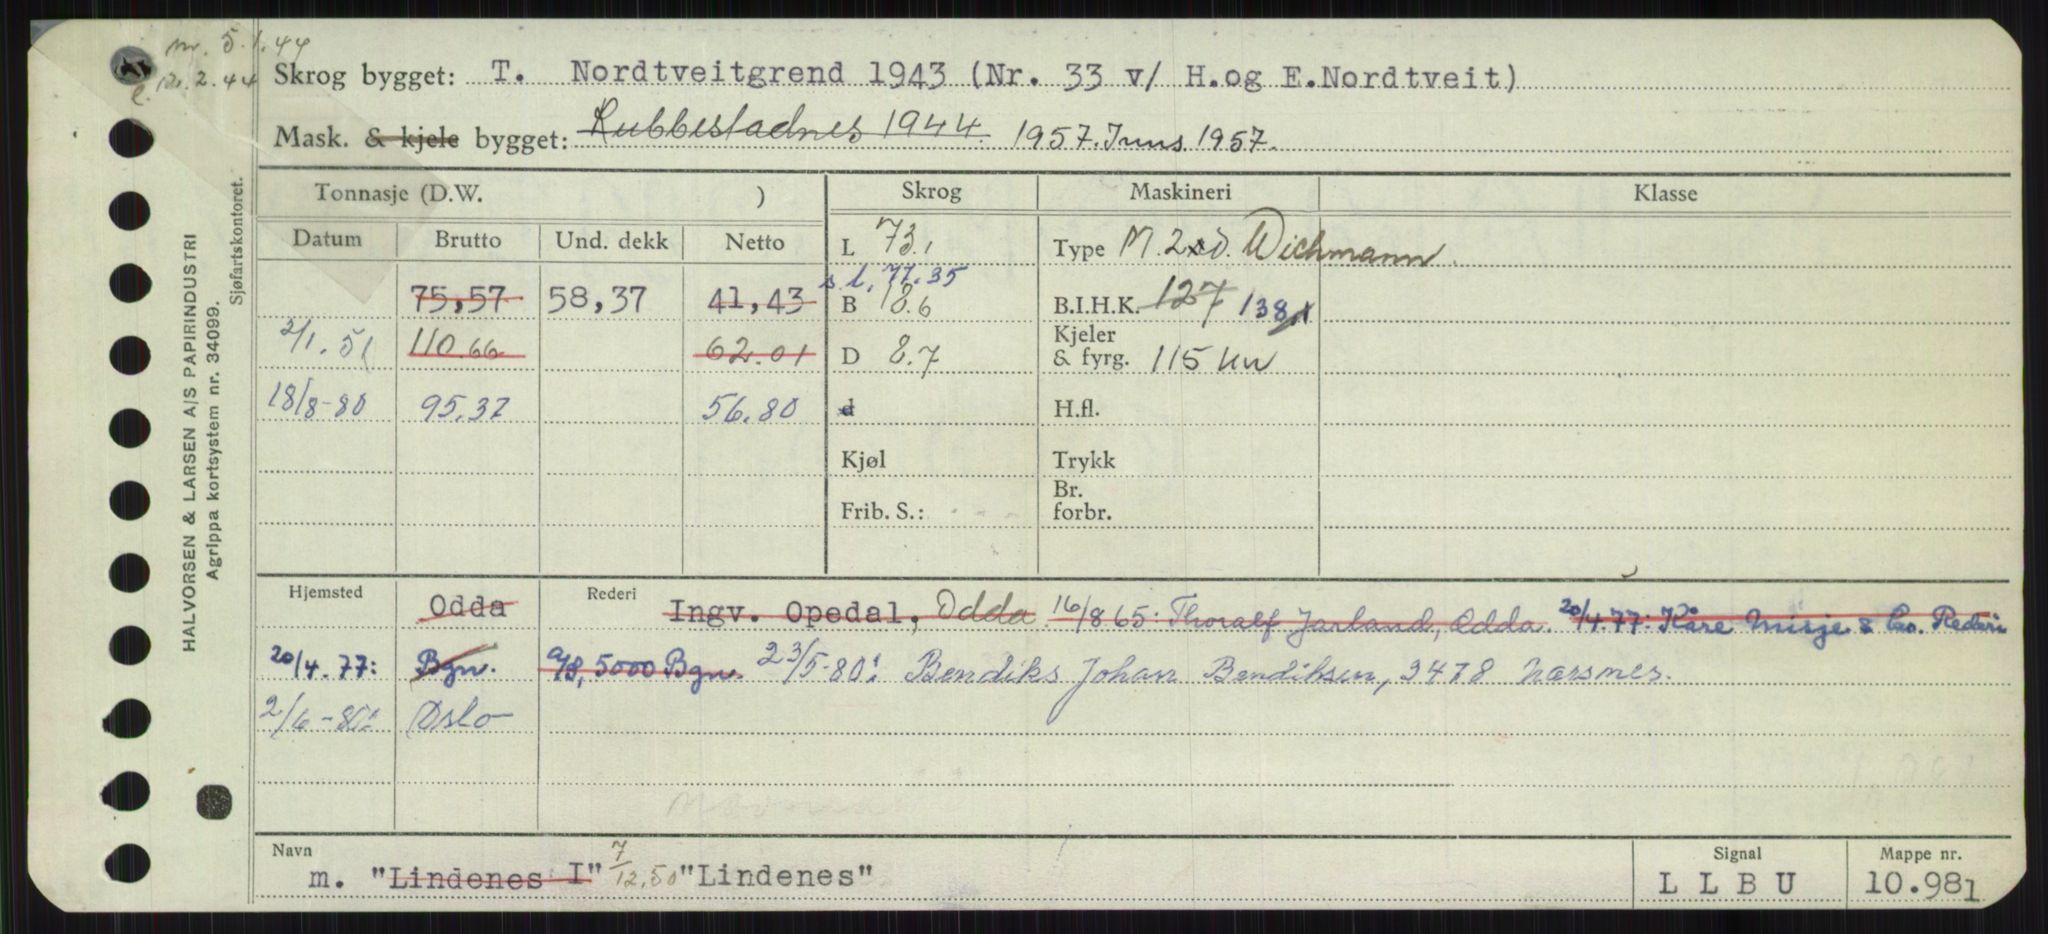 nr. 5.1.44
e. 12.2.44
Skrog bygget: T. Nordtveitgrend 1943 (Nr. 33 v/ H.og E.Nordtveit)
Mask. & kjele bygget: Rubbestadnes 1944 1957. Juns. 1957.
Tonnasje (D.W. )
Skrog
Maskineri
Klasse
Datum Brutto Und. dekk Netto
L 73,1
Type M. 2 x D. Wichmann.
s.l. 77.35
75,57 58,37 41,43
B 18.6
B.I.H.K. 127 138
2/1.51 110.66 62.01
D 8.7
Kjeler
& fyrg. 115 Nn
18/8-80 95.37 56.80
d
H.fl.
Kjøl
Trykk
Frib. S.:
Br.
forbr.
Hjemsted Odda Rederi Ingv. Opedal, Odda 16/8 65: Thoralf Jarland, Odda. 20/4.77: Kåre Misje & Co. Rederi
20/4.77: Bgn. A/S, 5000 Bgn 23/5-80: Bendiks Johan Bendiksen, 3478 Nærsnes.
2/6-80: Oslo
Navn
m. "Lindenes I" 7/12.50 "Lindenes"
Signal
L L B U
Mappe nr.
10.981
HALVORSEN & LARSEN A/S PAPIRINDUSTRI
Agrippa kortsystem nr. 34099.
Sjøfartskontoret.